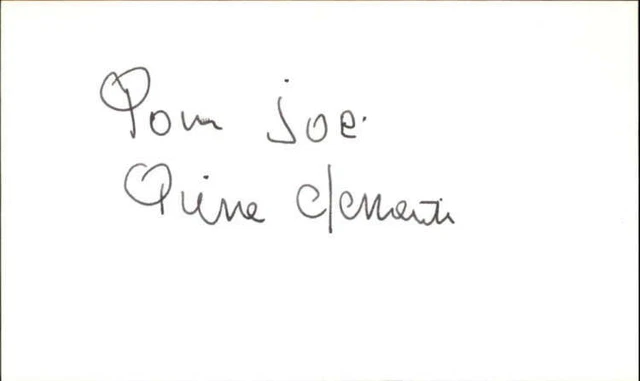 Pour Joe
Pierre Clementi